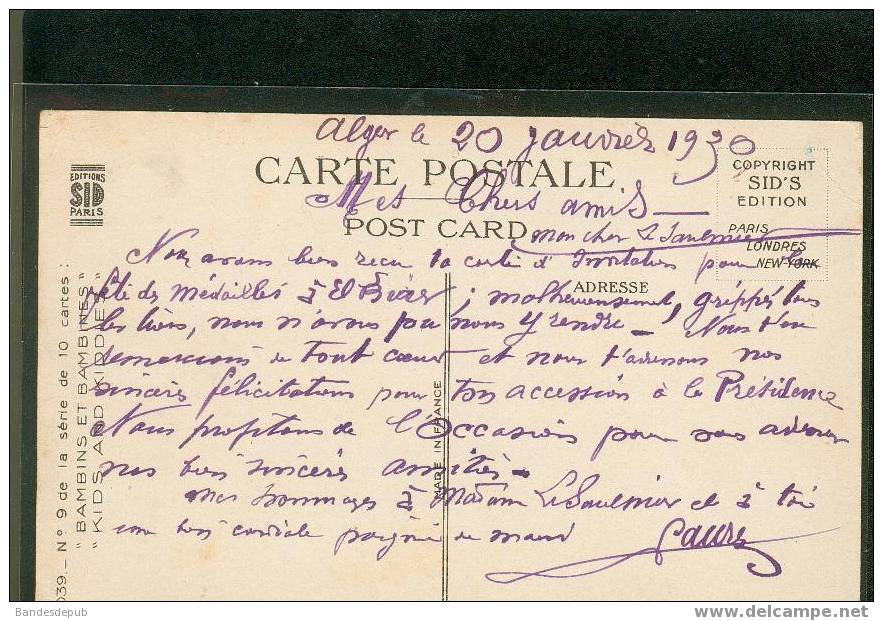 Alger le 20 Janvier 1930
CARTE POSTALE
Mes Chers amis
POST CARD
mon cher Le Saulnier
Nous avons bien reçu ta carte d'Invitation pour la
fête des Médaillés à El Biar ; malheureusement, grippés tous
les trois, nous n'avons pu nous y rendre - Nous t'en
remercions de tout coeur et nous t'adressons nos
sincères félicitations pour ton accession à la Présidence
Nous profitons de l'Occasion pour vous adresser
nos bien sincères amitiés -
Mes hommages à Madame Le Saulnier et à toi
une bien cordiale poignée de main
ADRESSE
COPYRIGHT
SID'S
EDITION
PARIS
LONDRES
NEW-YORK
EDITIONS
SID
PARIS
039. - N° 9 de la série de 10 cartes :
"BAMBINS ET BAMBINES"
"KIDS AND KIDDIES"
MADE IN FRANCE
Bandesdepub
www.delcampe.net